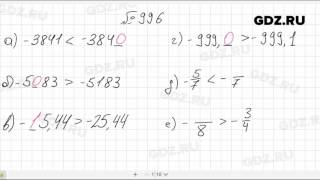 GDZ.RU
№ 996
а) -3841 < -3840
г) -999,0 > -999,1
б) -5083 > -5183
д) -5/7 < - /7
в) -15,44 > -25,44
е) - /8 > -3/4
GDZ.RU